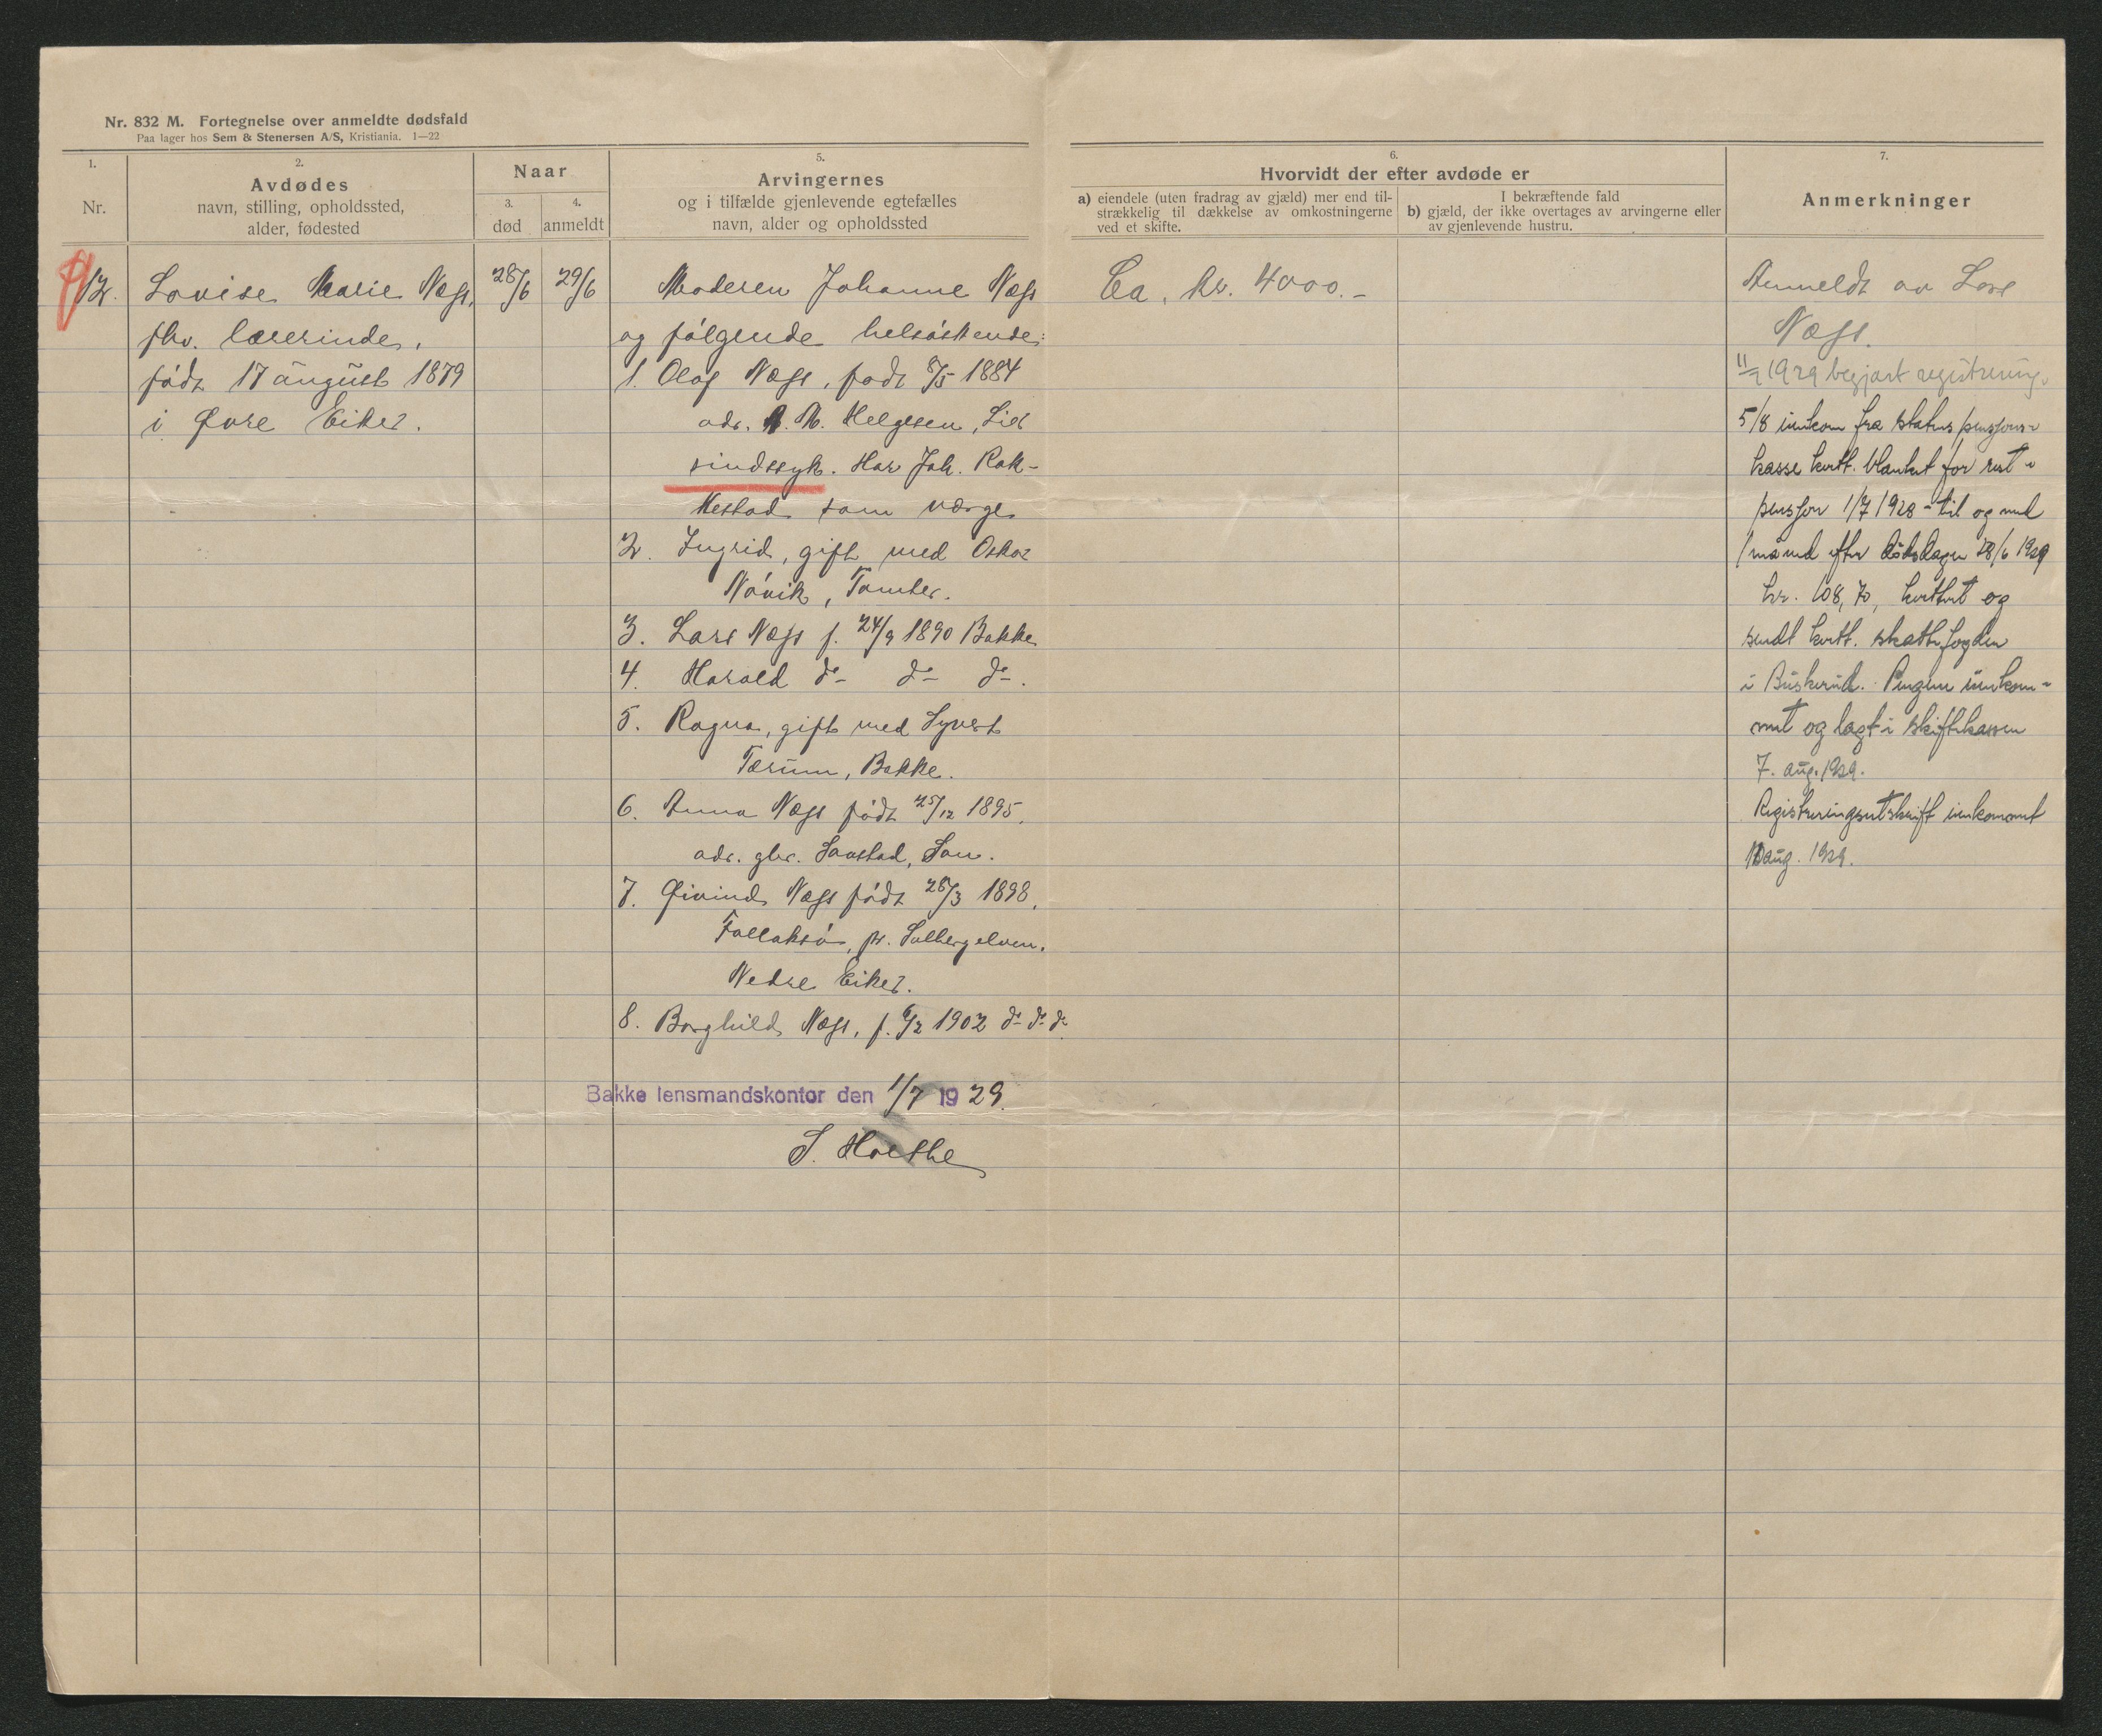 Nr. 832 M. Fortegnelse over anmeldte dødsfald
Paa lager hos Sem & Stenersen A/S, Kristiania. 1—22
1.
Nr.
2.
Avdødes
navn, stilling, opholdssted,
alder, fødested
Naar
3.
død
4.
anmeldt
5.
Arvingernes
og i tilfælde gjenlevende egtefælles
navn, alder og opholdssted
6.
Hvorvidt der efter avdøde er
a) eiendele (uten fradrag av gjæld) mer end til-
strækkelig til dækkelse av omkostningerne
ved et skifte.
I bekræftende fald
b) gjæld, der ikke overtages av arvingerne eller
av gjenlevende hustru.
7.
Anmerkninger
12.
Lovise Marie Næss,
fhv. lærerinde,
født 17 august 1879
i Øvre Eiker.
28/6
29/6
Moderen Johanne Næss
og følgende helsøskende:
1. Olaf Næss, født 8/5 1884
adr. M. Helgesen, Lier
sindssyk. Har Joh. Rak-
kestad som værge
2. Ingrid, gift med Oskar
Nøvik, Tomter.
3. Lars Næss f. 24/9 1890 Bakke
4. Harald do do do.
5. Ragna, gift med Syvert
Tærum, Bakke.
6. Anna Næss født 25/12 1895,
adr. gbr. Saustad, Son.
7. Øivind Næss født 28/3 1898,
pr. Solbergelven.
Nedre Eiker.
8. Borghild Næss, f. 6/2 1902 do do do.
Bakke lensmandskontor den 1/7 1929.
S. Holthe
Ca. kr. 4000.-
Anmeldt av Lars
Næss.
11/7 1929 begjært registrering.
5/8 innkom fra statens pensjons-
kasse kvitt. blankett for rest-
pensjon 1/7 1928 - til og med
1 måned efter dödsdagen 28/6 1929
kr. 108,70, kvittert og
sendt kvitt. skattefogden
i Buskerud. Pengene innkom-
met og lagt i skiftekassen
7. aug. 1929.
Registreringsutskrift innkommet
aug. 1929.